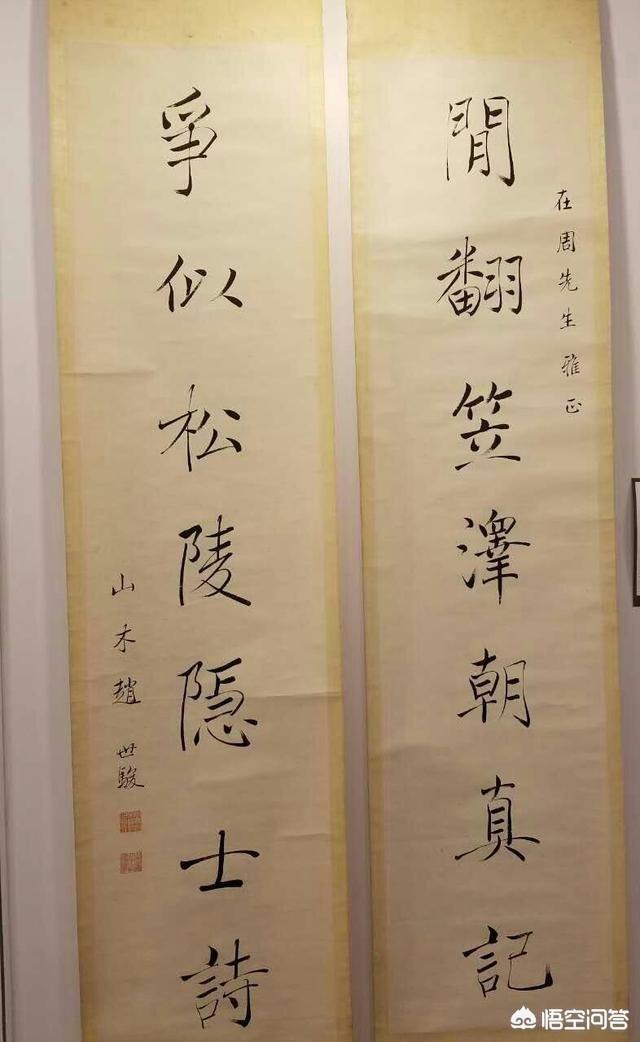 在周先生雅正
閒翻笠澤朝真記
爭似松陵隱士詩
山木趙世駿
悟空问答